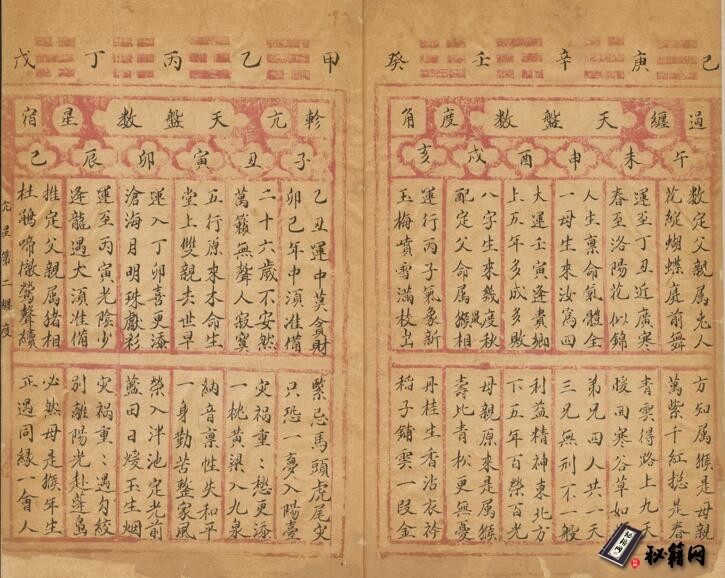 己庚辛壬癸
過纏天盤數度角
午未申酉戌亥
數定父親属兎人
花縱蝴蝶庭前舞
運至丁丑近廣寒
春至洛陽花似錦
人生稟命氣體全
一母生來汝為四
大運壬寅逢貴鄉
上五年多成多敗
八字生來幾度秋
配定父命属猴相
運行丙子氣象新
玉梅噴雪滿枝上
方知属猴是母親
萬紫千紅捴是春
青雲得路上九天
暖回寒谷草如
弟兄四人共一天
三兄無刑不一般
利益精神東北方
下五年百榮百光
母親原來是属猴
壽比青松更無憂
丹桂生香沾衣衿
稻子鋪雲一段金
甲乙丙丁戊
軫亢天盤數星宿
子丑寅卯辰巳
乙丑運中莫貪財
卯己年中須准備
二十六歲不安然
萬籟無聲人寂寞
五行原來木命生
堂上雙親去世早
運入丁卯喜更添
滄海月明珠獻彩
運至丙寅光陰少
逢龍遇大須准備
推定父親属猪相
杜鵑啼徹鶯聲續
緊忌馬頭虎尾灾
只恐一夢入陽臺
灾禍重〻愁更添
一桃黃梁入九泉
納音稟性失和平
一身勤苦整家風
榮入泮池定光前
藍田日煖玉生烟
灾禍重〻遇勾絞
別離陽光赴蓬島
必然母是猴年生
正遇同緣一會人
亢星第二纏度
秘籍网